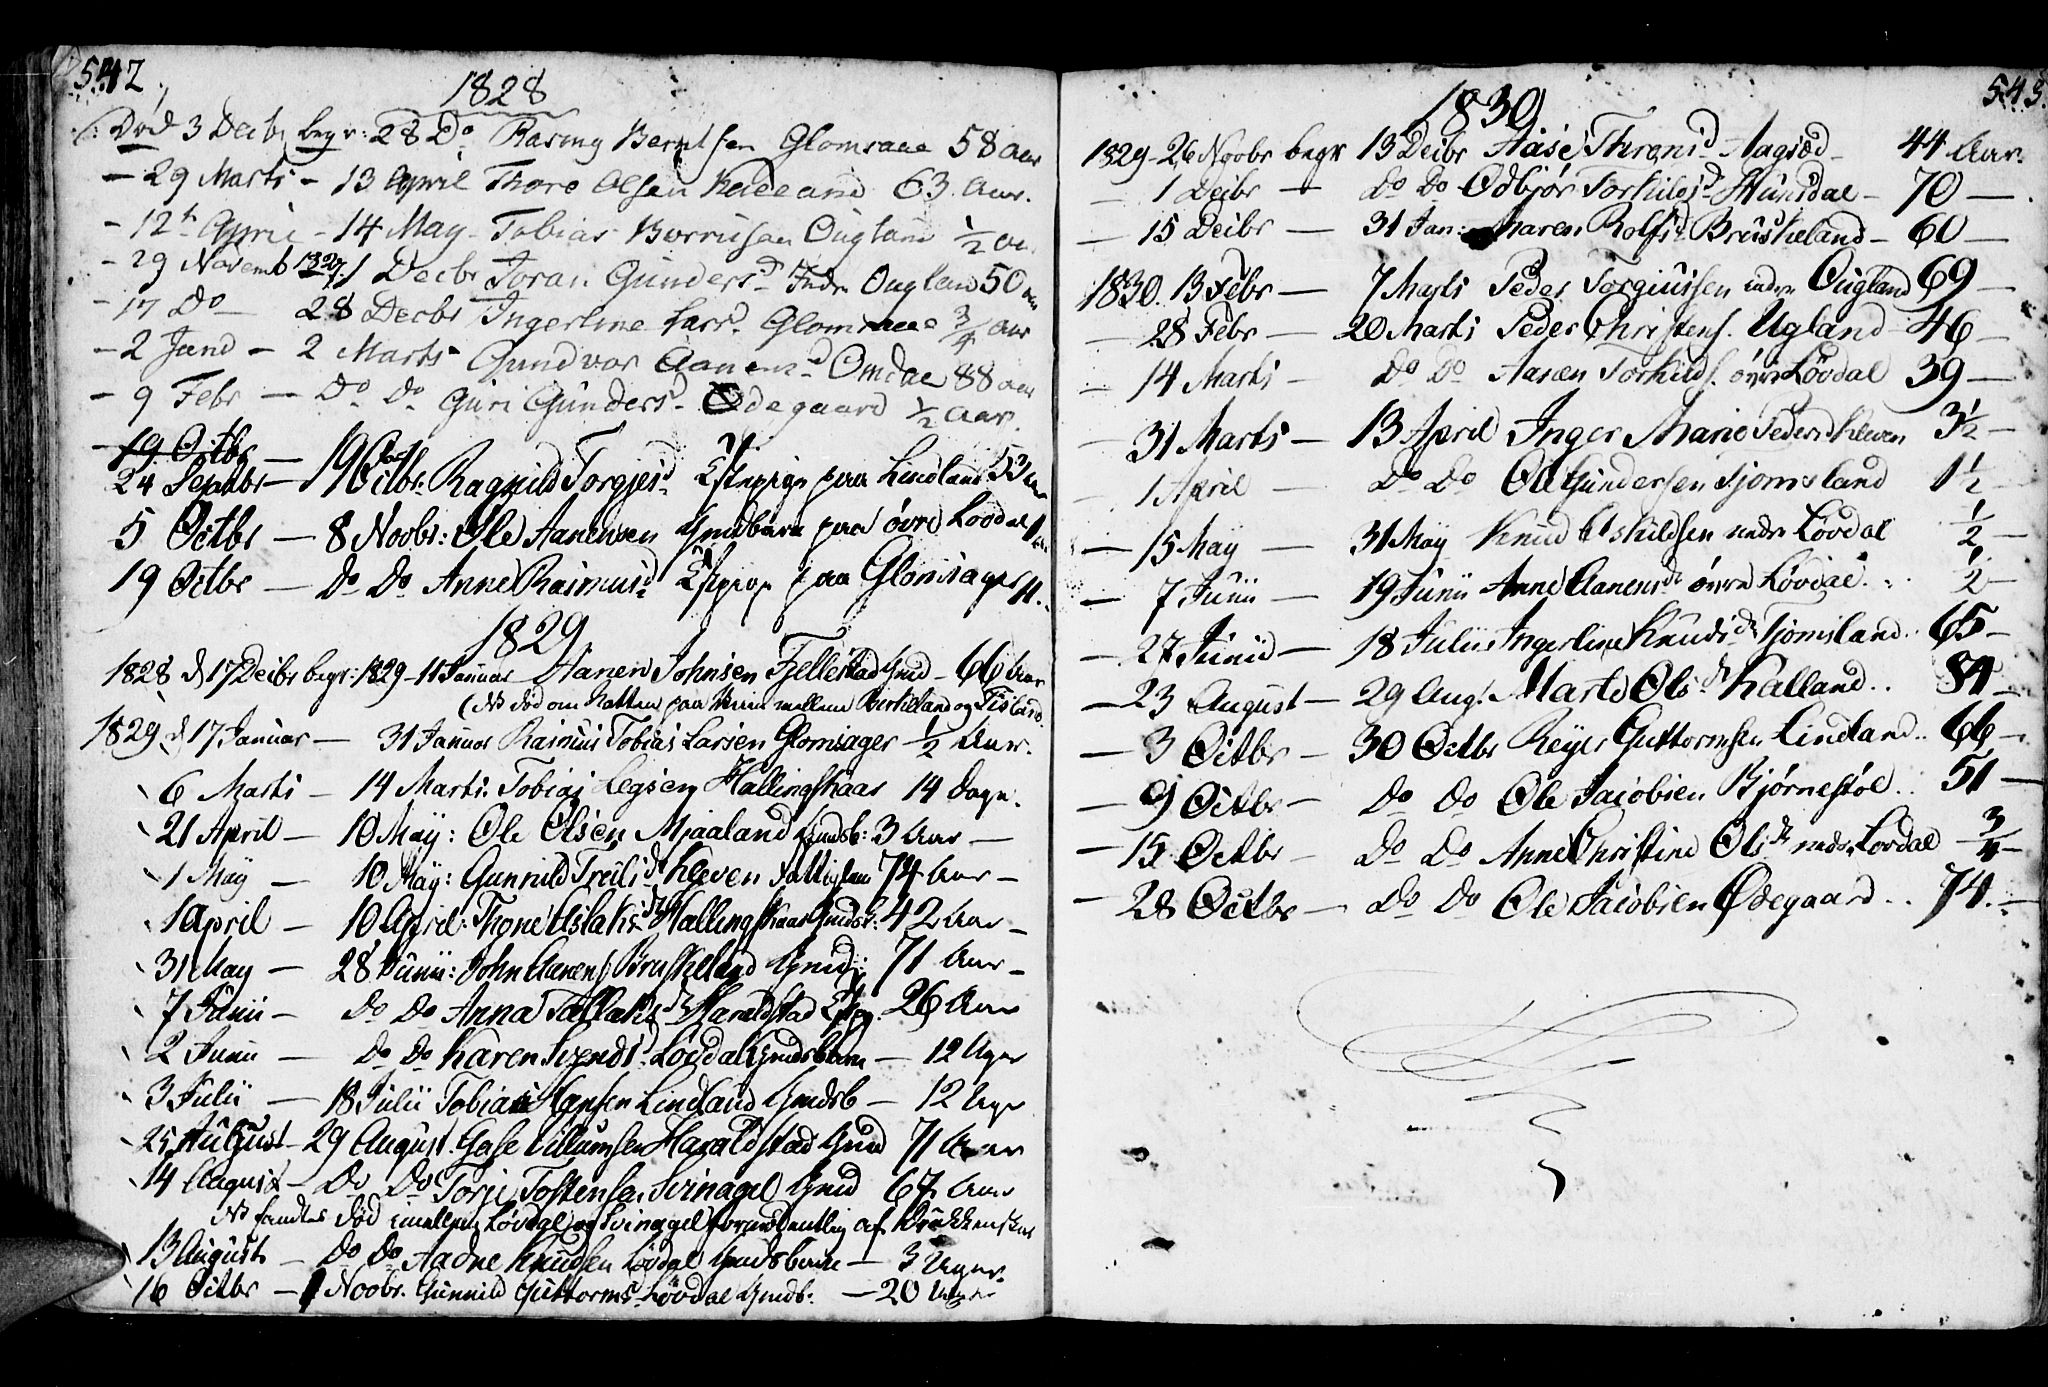 542
1828
Død 3 Decbr begr: 28 Do Rasmus Berntsen Glomsaae 58 Aar
- 29 Marts - 13 April Thore Olsen Kalland 63 Aar.
- 12te April - 14 May Tobias Ougland ½ Aar
- 29 Novemb 1827 1 Decbr Joran Gundersd Indr Ougland 50 Aar
- 17 Do - 28 Decbr Ingerline Larsd. Glomsaae ¾ Aar
- 2 Jand - 2 Marts Gundvor Aanensd Omdal 88 Aar
- 9 Febr - Do Do Guri Gundersd Ødegaard ½ Aar.
19 Octbr -
24 Septbr - 19 Octbr. Ragnild Torgjesd paa Lindland 53 Aar
5 Octbr - 8 Novbr: Ole Aanensen Gmdbarn paa øvre Løvdal 1
19 Octbr - Do Do Anne Rasmusd paa Glomsager 11.
1829
1828 d 17 Decbr begr: 1829 - 11 Januar Aanen Johnsen Fjellestad Gmd - 66 Aar
(NB død om Natten paa Veien mellem Birkeland og Fisland.
1829 d 17 Januar - 31 Januar Rasmus Tobias Larsen Glomsager ½ Aar.
6 Marts - 14 Marts. Tobias Hallingskaar 14 Dage.
21 April - 10 May: Ole Olsen Mjaaland Gmdsb: 3 Aar -
1 May - 10 May: Gunnild Kleven Fattiglem 74 Aar -
1 April - 10 April: Thone Aslaksd Hallingskaar Gmdsk: 42 Aar -
31 May - 28 Junii: John Aanens. Bruskeland Gmd: 71 Aar -
7 Junii - Do Do Anna Tallaksd Haraldstad 26 Aar
2 Junii - Do Do Karen Svendsd Løvdal Gmdsbarn - 12 Uger
3 Julii - 18 Julii Tobias Hansen Lindland Gmdsb - 12 Uger
25 August - 29 August. Villumsen Haraldstad Gmd 71 Aar
14 August - Do Do Torje Tostensen Svinagel Gmd 67 Aar
NB fandtes død imellem Løvdal og Svinagel formodentlig af Drukkenskab
13 August - Do Do Aadne Knudsen Løvdal Gmdsbarn - 3 Uger.
16 Octbr - 1 Novbr. Gunnild Guttormsd Løvdal Gmdb: - 20 Uger
543.
1830
1829 - 26 Novbr begr 13 Decbr Aase Thronsd Aagsød - 44 Aar.
- 1 Decbr - Do Do Odbjør Torkilsd Hunsdal - 70 -
- 15 Decbr - 31 Jan: Maren Rolfsd Bruskeland - 60 -
1830. 13 Febr - 7 Marts Peder Torgiussen indre Ougland 69 -
- 28 Febr - 20 Marts Peder Christens. Ugland - 46 -
- 14 Marts - Do Do Aanen Torkilds. øvre Løvdal 39 -
- 31 Marts - 13 April Inger Marie Pedersd Kleven 3½ -
- 1 April - Do Do Ole Gundersen Tjomsland 1½ -
- 15 May - 31 May Knud Eskildsen nedre Løvdal ½ -
- 7 Junii - 19 Junii Anne Aanensdr øvre Løvdal. ½ -
- 27 Junii - 18 Julii Ingerline Knudsdr Tjomsland.. 65 -
- 23 August - 29 Aug. Marte Olsdr Kalland.. 84 -
- 3 Octbr - 30 Octbr Reyer Guttormsen Lindland.. 66 -
- 9 Octbr - Do Do Ole Jacobsen Bjørnestøl.. 51 -
- 15 Octbr - Do Do Anne Christine Olsdr nedre Løvdal ¾ -
- 28 Octbr - Do Do Ole Jacobsen Ødegaard.. 74. -